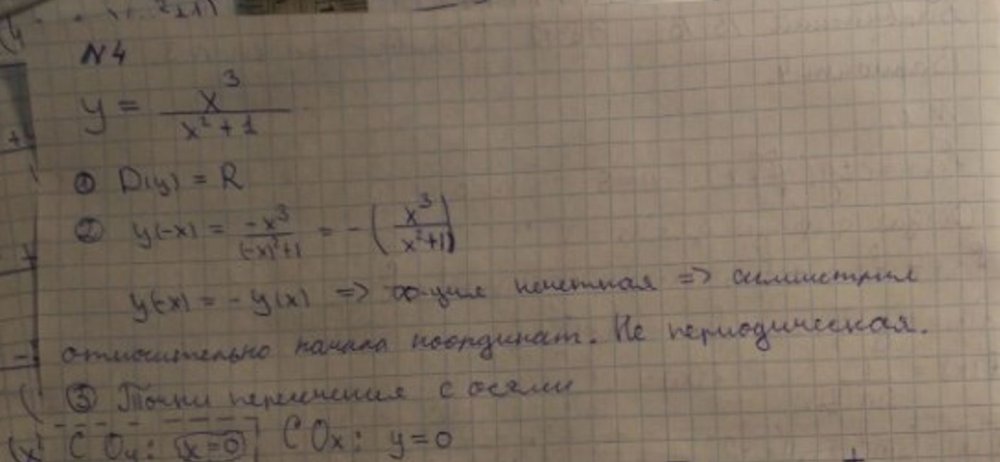 N4
y = x³/(x²+1)
① D(y) = R
② y(-x) = -x³/((-x)²+1) = -(x³/(x²+1))
y(-x) = -y(x) => ф-ция нечетная => симметрия
относительно начала координат. Не периодическая.
③ Точки пересечения с осями
С Oy: x=0 С Ox: y=0